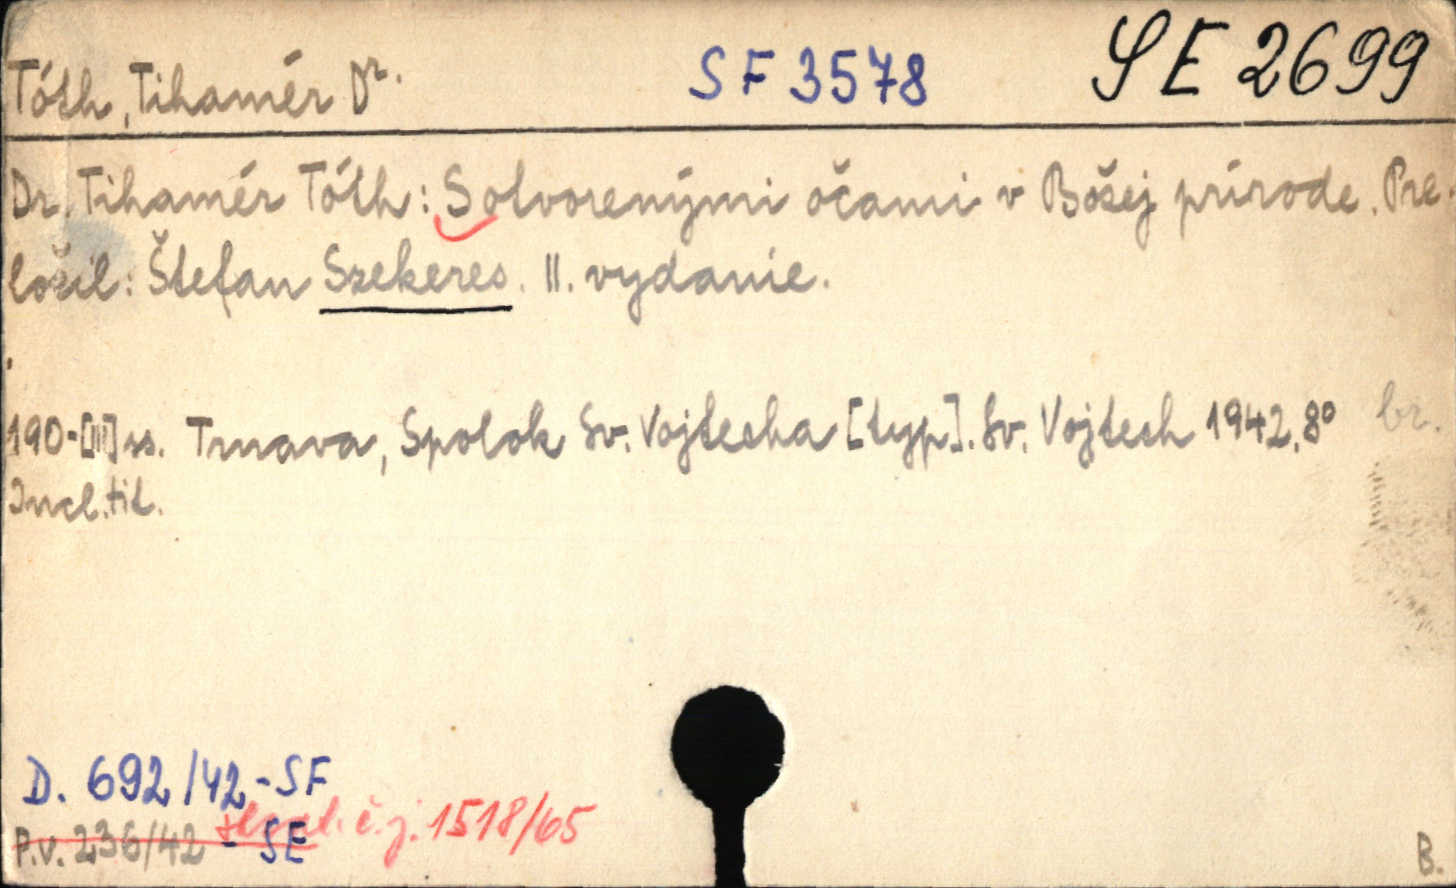 Tóth, Tihamér Dr.
SF 3578
SE 2699
Dr. Tihamér Tóth: S otvorenými očami v Božej prírode. Pre
ložil: Štefan Szekeres. II. vydanie.
190-[III] ss. Trnava, Spolok Sv. Vojtecha [typ]. Sv. Vojtech 1942. 8° br.
Incl. tit.
D. 692/42 - SF
č. j. 1518/65
P.v. 236/42 - SE
B.